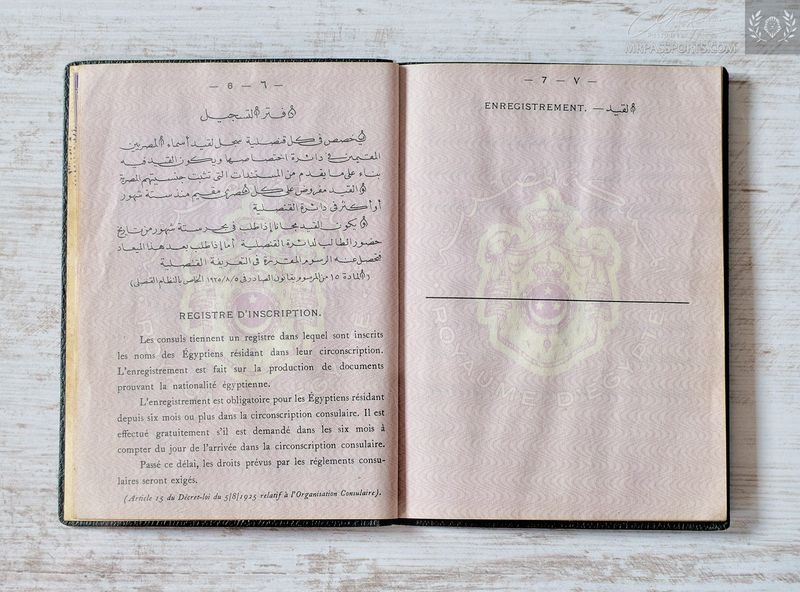 MRPASSPORTS.COM
— 6 — ٦ —
دفتر التسجيل
يخصص في كل قنصلية سجل لقيد أسماء المصريين
المقيمين في دائرة اختصاصها ويكون القيد فيه
بناء على ما يقدم من المستندات التي تثبت جنسيتهم المصرية
القيد مفروض على كل مصري مقيم منذ ستة شهور
أو أكثر في دائرة القنصلية
يكون القيد مجانا إذا طلب في بحر ستة شهور من تاريخ
حضور الطالب لدائرة القنصلية أما إذا طلب بعد هذا الميعاد
فتحصل عنه الرسوم المقررة في التعريفة القنصلية
(المادة ١٥ من المرسوم بقانون الصادر في ١٩٢٥/٨/٥ الخاص بالنظام القنصلي)
REGISTRE D'INSCRIPTION.
Les consuls tiennent un registre dans lequel sont inscrits
les noms des Égyptiens résidant dans leur circonscription.
L'enregistrement est fait sur la production de documents
prouvant la nationalité égyptienne.
L'enregistrement est obligatoire pour les Égyptiens résidant
depuis six mois ou plus dans la circonscription consulaire. Il est
effectué gratuitement s'il est demandé dans les six mois à
compter du jour de l'arrivée dans la circonscription consulaire.
Passé ce délai, les droits prévus par les réglements consu-
laires seront exigés.
(Article 15 du Décret-loi du 5/8/1925 relatif à l'Organisation Consulaire).
— 7 — ٧ —
ENREGISTREMENT. — القيد
ROYAUME D'ÉGYPTE